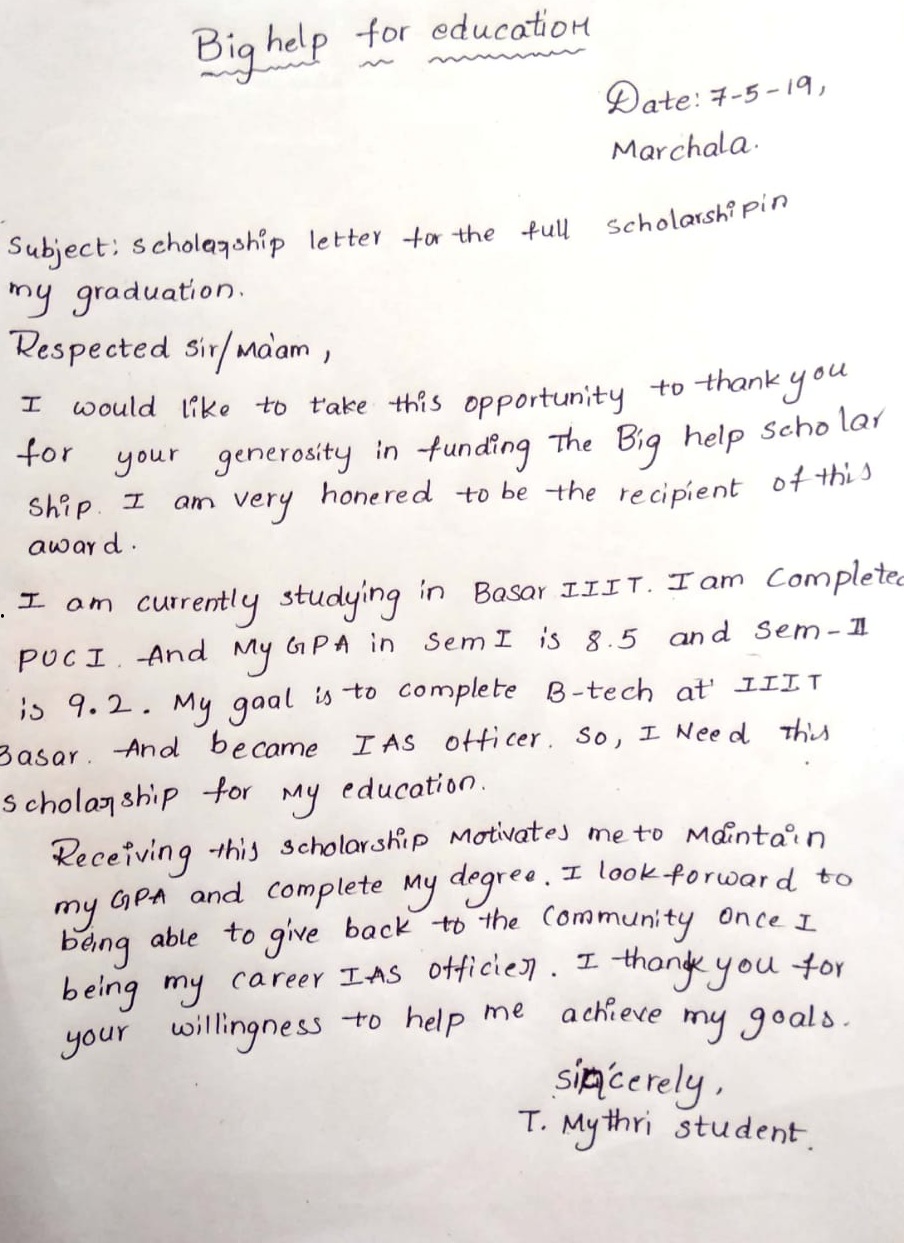 Big help for education
Date: 7-5-19,
Marchala.
Subject: Scholarship letter for the full scholarship in
my graduation.
Respected Sir/Ma'am,
I would like to take this opportunity to thank you
for your generosity in funding The Big help Scholar
Ship. I am very honered to be the recipient of this
award.
I am currently studying in Basar IIIT. I am Completed
PUC I. And My GPA in Sem I is 8.5 and Sem-II
is 9.2. My goal is to complete B-tech at IIIT
Basar. And became IAS officer. So, I Need This
Scholarship for My education.
Receiving this scholarship Motivates me to Maintain
my GPA and complete My degree. I look forward to
being able to give back to the Community Once I
being my career IAS officier. I thank you for
your willingness to help me achieve my goals.
Sincerely,
T. Mythri student.